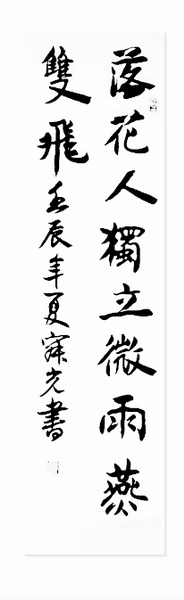 落花人獨立微雨燕
雙飛壬辰年夏寐光書